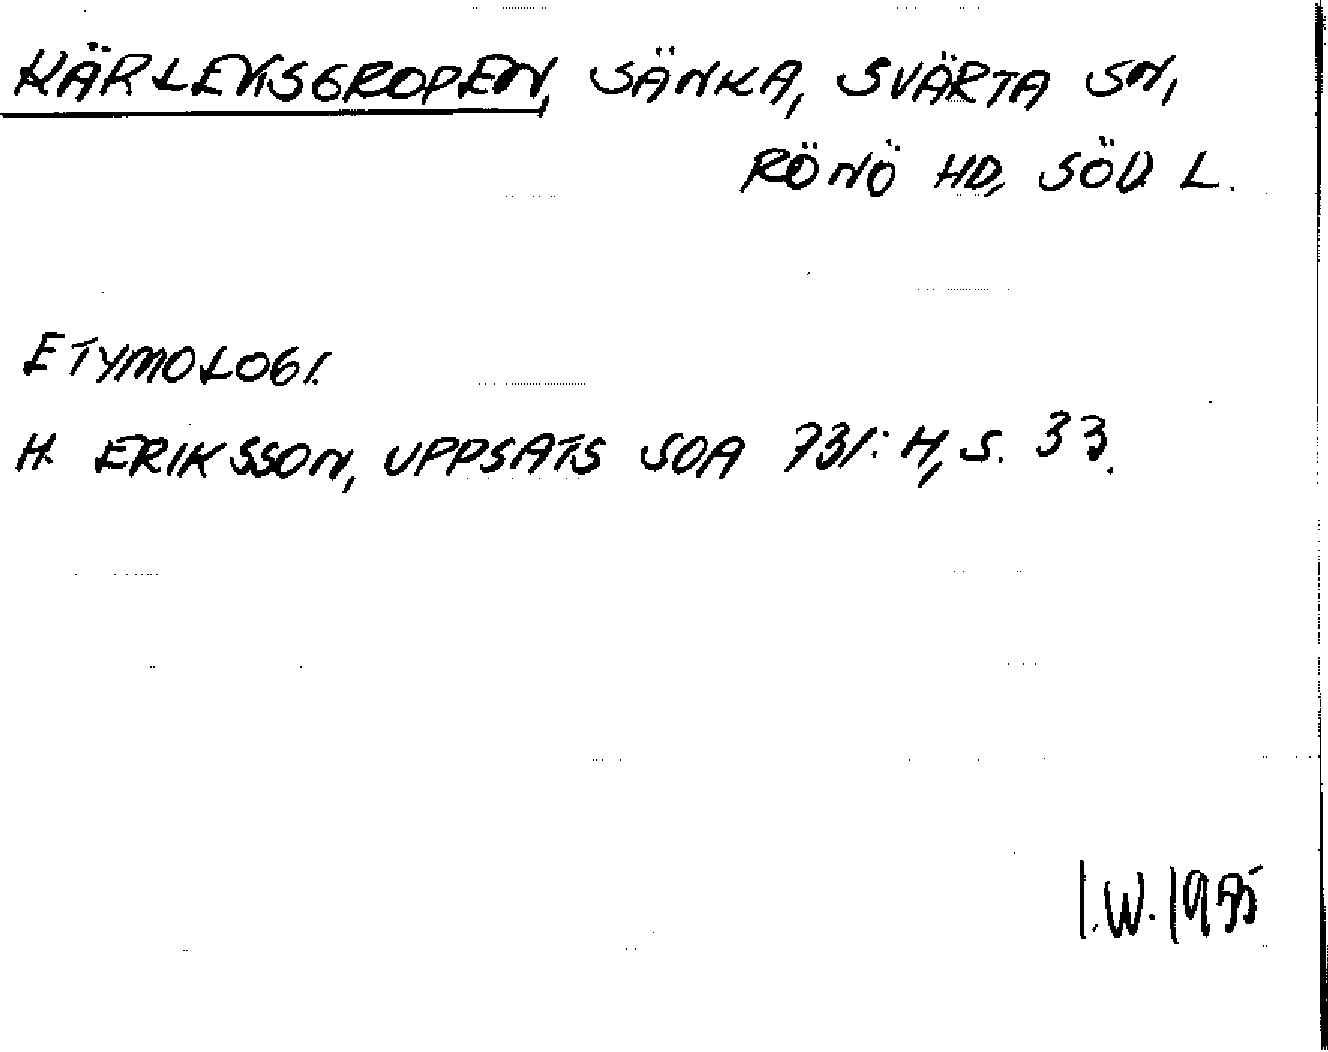 KÄRLEKSGROPEN, SÄNKA, SVÄRTA SN,
RÖNÖ HD, SÖD. L.
ETYMOLOGI.
H. ERIKSSON, UPPSATS SOA 731:H, S. 33.
I.W. 1975